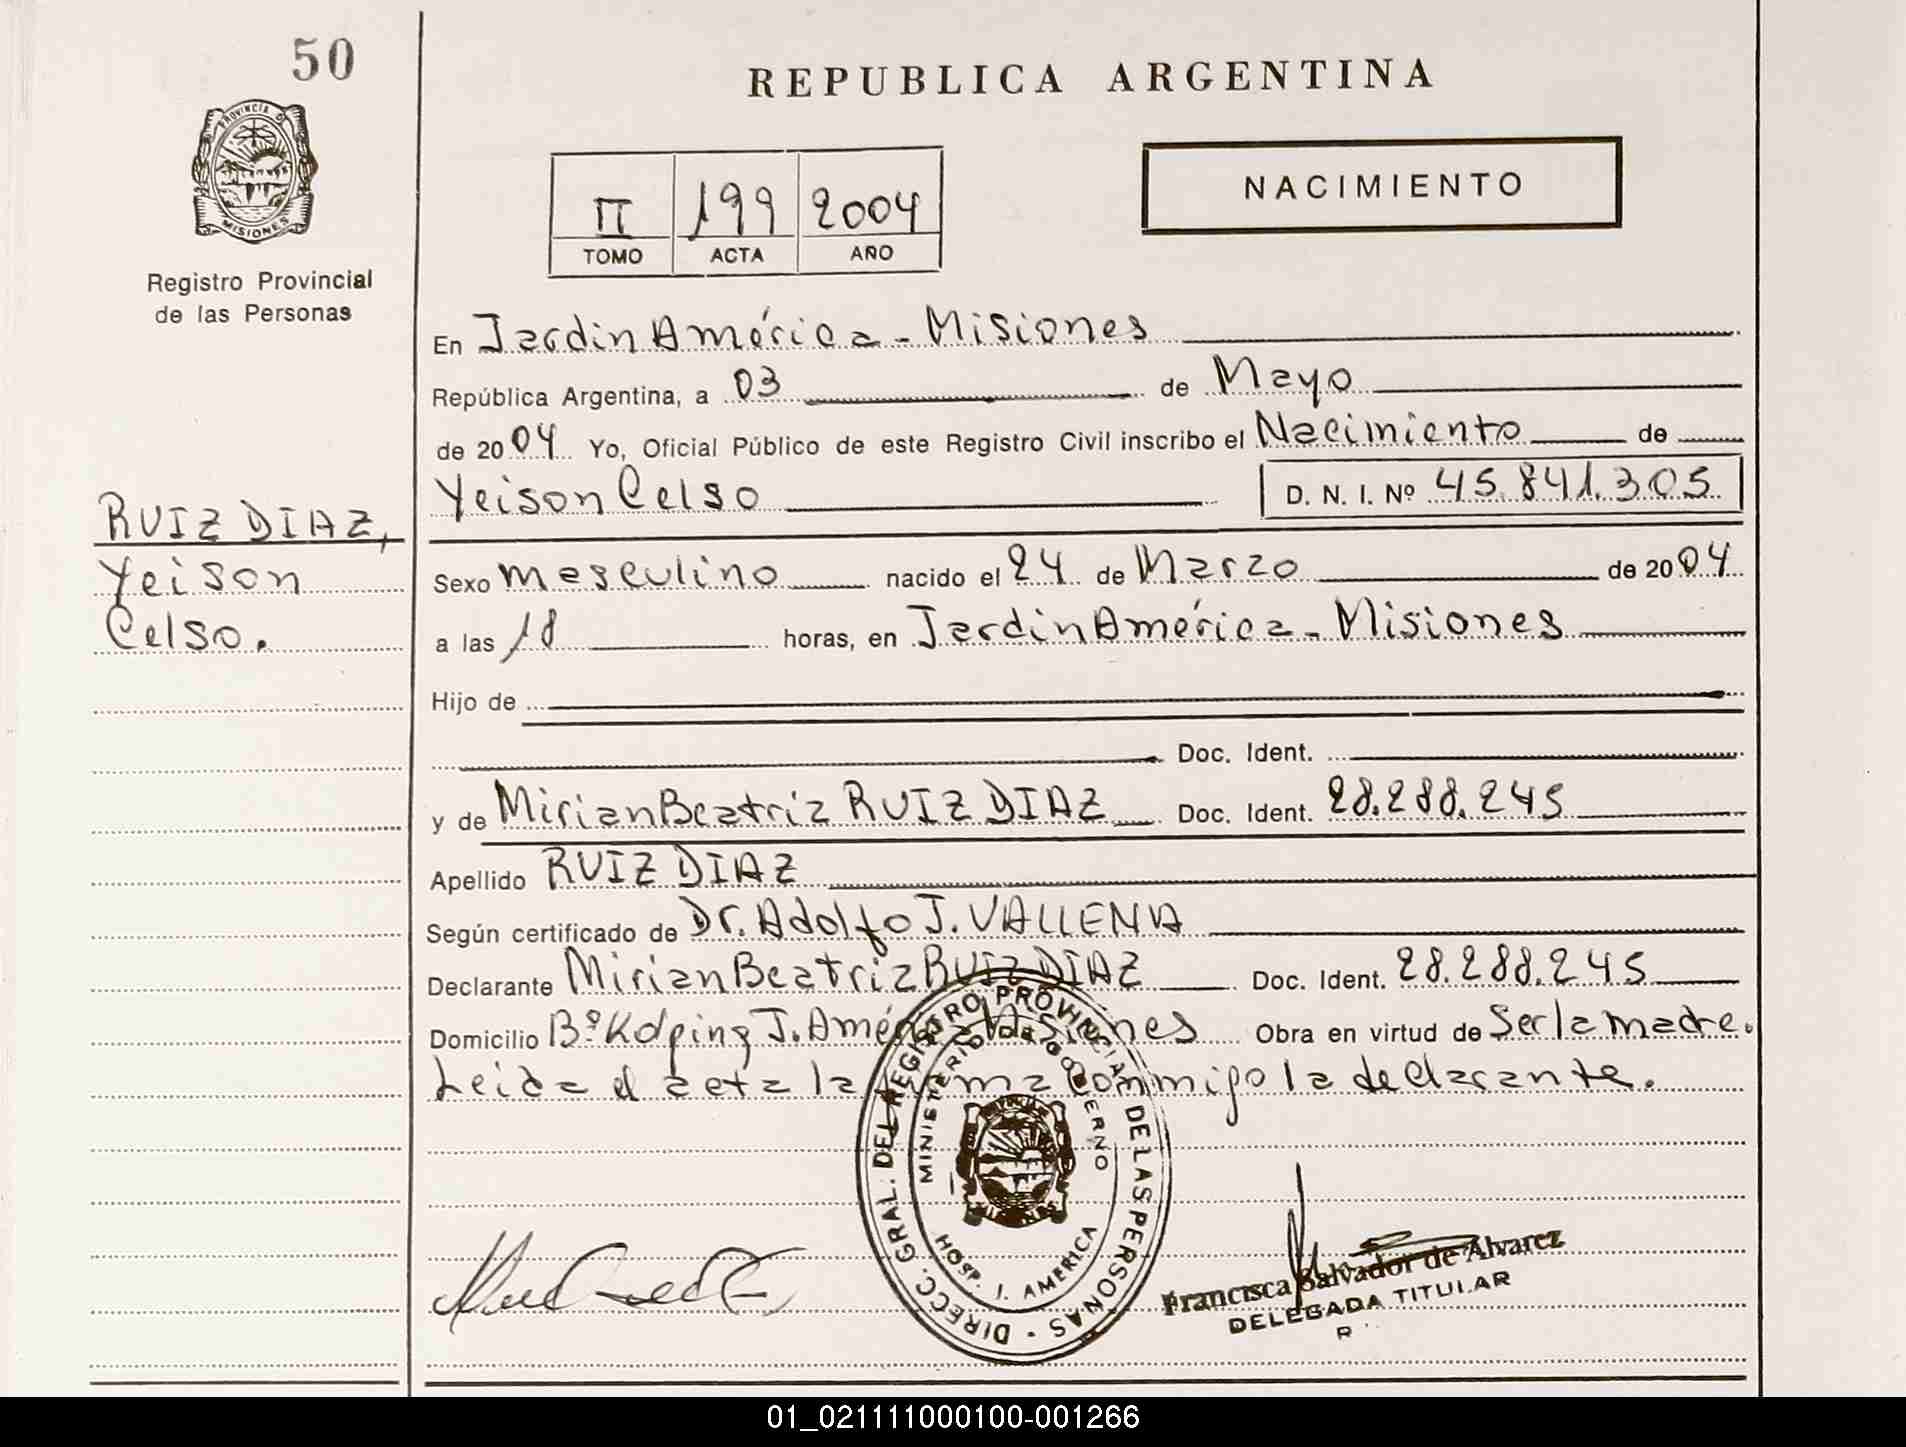 50
REPUBLICA ARGENTINA
PROVINCIA D
MISIONES
II 199 2004
TOMO ACTA AÑO
NACIMIENTO
Registro Provincial
de las Personas
En Jardin América - Misiones
República Argentina, a 03 de Mayo
de 2004 Yo, Oficial Público de este Registro Civil inscribo el Nacimiento de
Yeison Celso D. N. I. Nº 45.841.305
RUIZ DIAZ,
Yeison
Celso.
Sexo masculino nacido el 24 de Marzo de 2004
a las 18 horas, en Jardin América - Misiones
Hijo de
Doc. Ident.
y de Mirian Beatriz RUIZ DIAZ Doc. Ident. 28.288.245
Apellido RUIZ DIAZ
Según certificado de Dr. Adolfo J. VALLENA
Declarante Mirian Beatriz RUIZ DIAZ Doc. Ident. 28.288.245
Domicilio Bº Kolping J. América Misiones Obra en virtud de Ser la madre.
Leida el acta la firma conmigo la declarante.
DIRECC. GRAL. DEL REGISTRO PROVINCIAL DE LAS PERSONAS
MINISTERIO DE GOBIERNO
HOSP. J. AMERICA
Francisca Salvador de Alvarez
DELEGADA TITULAR
R
01_021111000100-001266